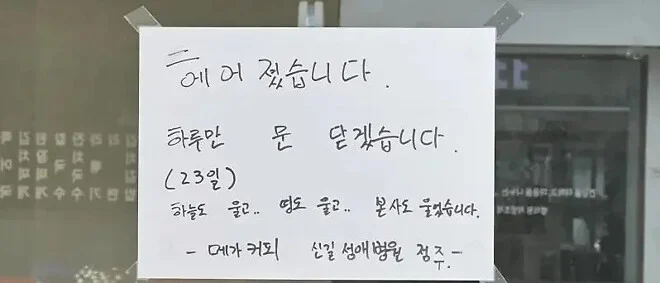 헤어졌습니다.
하루만 문 닫겠습니다.
(23일)
하늘도 울고.. 땅도 울고.. 본사도 울었습니다.
- 메가커피 신길성애병원 점주.-